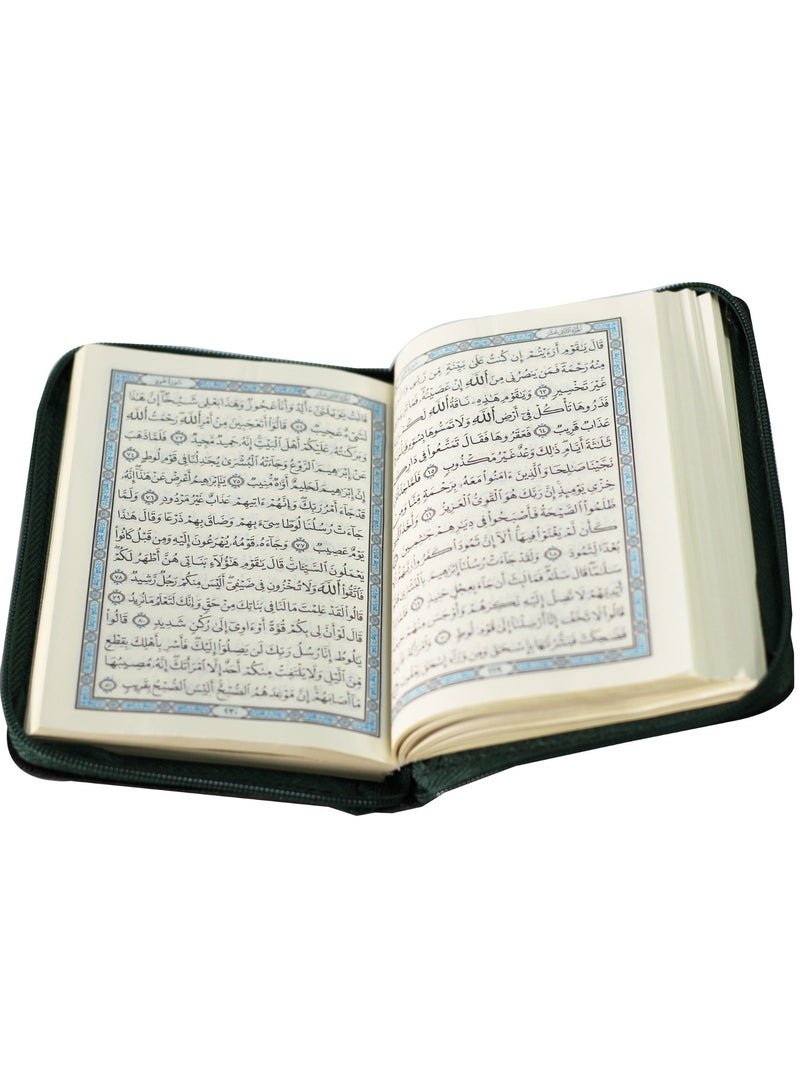 الجزء الثاني عشر
قَالَ يَٰقَوْمِ أَرَءَيْتُمْ إِن كُنتُ عَلَىٰ بَيِّنَةٍ مِّن رَّبِّي
مِنْهُ رَحْمَةً فَمَن يَنصُرُنِي مِنَ ٱللَّهِ إِنْ عَصَيْتُهُۥ
غَيْرَ تَخْسِيرٍ ٦٣ وَيَٰقَوْمِ هَٰذِهِۦ نَاقَةُ ٱللَّهِ لَكُمْ
فَذَرُوهَا تَأْكُلْ فِيٓ أَرْضِ ٱللَّهِ وَلَا تَمَسُّوهَا بِسُوٓءٍ
عَذَابٌ قَرِيبٌ ٦٤ فَعَقَرُوهَا فَقَالَ تَمَتَّعُوا۟ فِي دَارِكُمْ
ثَلَٰثَةَ أَيَّامٍ ذَٰلِكَ وَعْدٌ غَيْرُ مَكْذُوبٍ ٦٥ فَلَمَّا
نَجَّيْنَا صَٰلِحًا وَٱلَّذِينَ ءَامَنُوا۟ مَعَهُۥ بِرَحْمَةٍ مِّنَّا وَمِنْ
خِزْيِ يَوْمِئِذٍ إِنَّ رَبَّكَ هُوَ ٱلْقَوِيُّ ٱلْعَزِيزُ ٦٦ وَأَخَذَ
ظَلَمُوا۟ ٱلصَّيْحَةُ فَأَصْبَحُوا۟ فِي دِيَٰرِهِمْ جَٰثِمِينَ
كَأَن لَّمْ يَغْنَوْا۟ فِيهَآ أَلَآ إِنَّ ثَمُودَا۟ كَفَرُوا۟ رَبَّهُمْ
بُعْدًا لِّثَمُودَ ٦٨ وَلَقَدْ جَآءَتْ رُسُلُنَآ إِبْرَٰهِيمَ بِٱلْبُشْرَىٰ
سَلَٰمًا قَالَ سَلَٰمٌ فَمَا لَبِثَ أَن جَآءَ بِعِجْلٍ حَنِيذٍ
أَيْدِيَهُمْ لَا تَصِلُ إِلَيْهِ نَكِرَهُمْ وَأَوْجَسَ مِنْهُمْ
قَالُوا۟ لَا تَخَفْ إِنَّآ أُرْسِلْنَآ إِلَىٰ قَوْمِ لُوطٍ
فَضَحِكَتْ فَبَشَّرْنَٰهَا بِإِسْحَٰقَ وَمِن وَرَآءِ إِسْحَٰقَ
٢٢٩
الجزء الثاني عشر سورة هود
قَالَتْ يَٰوَيْلَتَىٰٓ ءَأَلِدُ وَأَنَا۠ عَجُوزٌ وَهَٰذَا بَعْلِي شَيْخًا إِنَّ هَٰذَا
لَشَيْءٌ عَجِيبٌ ٧٢ قَالُوٓا۟ أَتَعْجَبِينَ مِنْ أَمْرِ ٱللَّهِ رَحْمَتُ ٱللَّهِ
وَبَرَكَٰتُهُۥ عَلَيْكُمْ أَهْلَ ٱلْبَيْتِ إِنَّهُۥ حَمِيدٌ مَّجِيدٌ ٧٣ فَلَمَّا ذَهَبَ
عَنْ إِبْرَٰهِيمَ ٱلرَّوْعُ وَجَآءَتْهُ ٱلْبُشْرَىٰ يُجَٰدِلُنَا فِي قَوْمِ لُوطٍ ٧٤
إِنَّ إِبْرَٰهِيمَ لَحَلِيمٌ أَوَّٰهٌ مُّنِيبٌ ٧٥ يَٰٓإِبْرَٰهِيمُ أَعْرِضْ عَنْ هَٰذَآ إِنَّهُۥ
قَدْ جَآءَ أَمْرُ رَبِّكَ وَإِنَّهُمْ ءَاتِيهِمْ عَذَابٌ غَيْرُ مَرْدُودٍ ٧٦ وَلَمَّا
جَآءَتْ رُسُلُنَا لُوطًا سِيٓءَ بِهِمْ وَضَاقَ بِهِمْ ذَرْعًا وَقَالَ هَٰذَا
يَوْمٌ عَصِيبٌ ٧٧ وَجَآءَهُۥ قَوْمُهُۥ يُهْرَعُونَ إِلَيْهِ وَمِن قَبْلُ كَانُوا۟
يَعْمَلُونَ ٱلسَّيِّـَٔاتِ قَالَ يَٰقَوْمِ هَٰٓؤُلَآءِ بَنَاتِي هُنَّ أَطْهَرُ لَكُمْ
فَٱتَّقُوا۟ ٱللَّهَ وَلَا تُخْزُونِ فِي ضَيْفِيٓ أَلَيْسَ مِنكُمْ رَجُلٌ رَّشِيدٌ ٧٨
قَالُوا۟ لَقَدْ عَلِمْتَ مَا لَنَا فِي بَنَاتِكَ مِنْ حَقٍّ وَإِنَّكَ لَتَعْلَمُ مَا نُرِيدُ ٧٩
قَالَ لَوْ أَنَّ لِي بِكُمْ قُوَّةً أَوْ ءَاوِيٓ إِلَىٰ رُكْنٍ شَدِيدٍ ٨٠ قَالُوا۟
يَٰلُوطُ إِنَّا رُسُلُ رَبِّكَ لَن يَصِلُوٓا۟ إِلَيْكَ فَأَسْرِ بِأَهْلِكَ بِقِطْعٍ
مِّنَ ٱلَّيْلِ وَلَا يَلْتَفِتْ مِنكُمْ أَحَدٌ إِلَّا ٱمْرَأَتَكَ إِنَّهُۥ مُصِيبُهَا
مَآ أَصَابَهُمْ إِنَّ مَوْعِدَهُمُ ٱلصُّبْحُ أَلَيْسَ ٱلصُّبْحُ بِقَرِيبٍ ٨١
٢٣٠